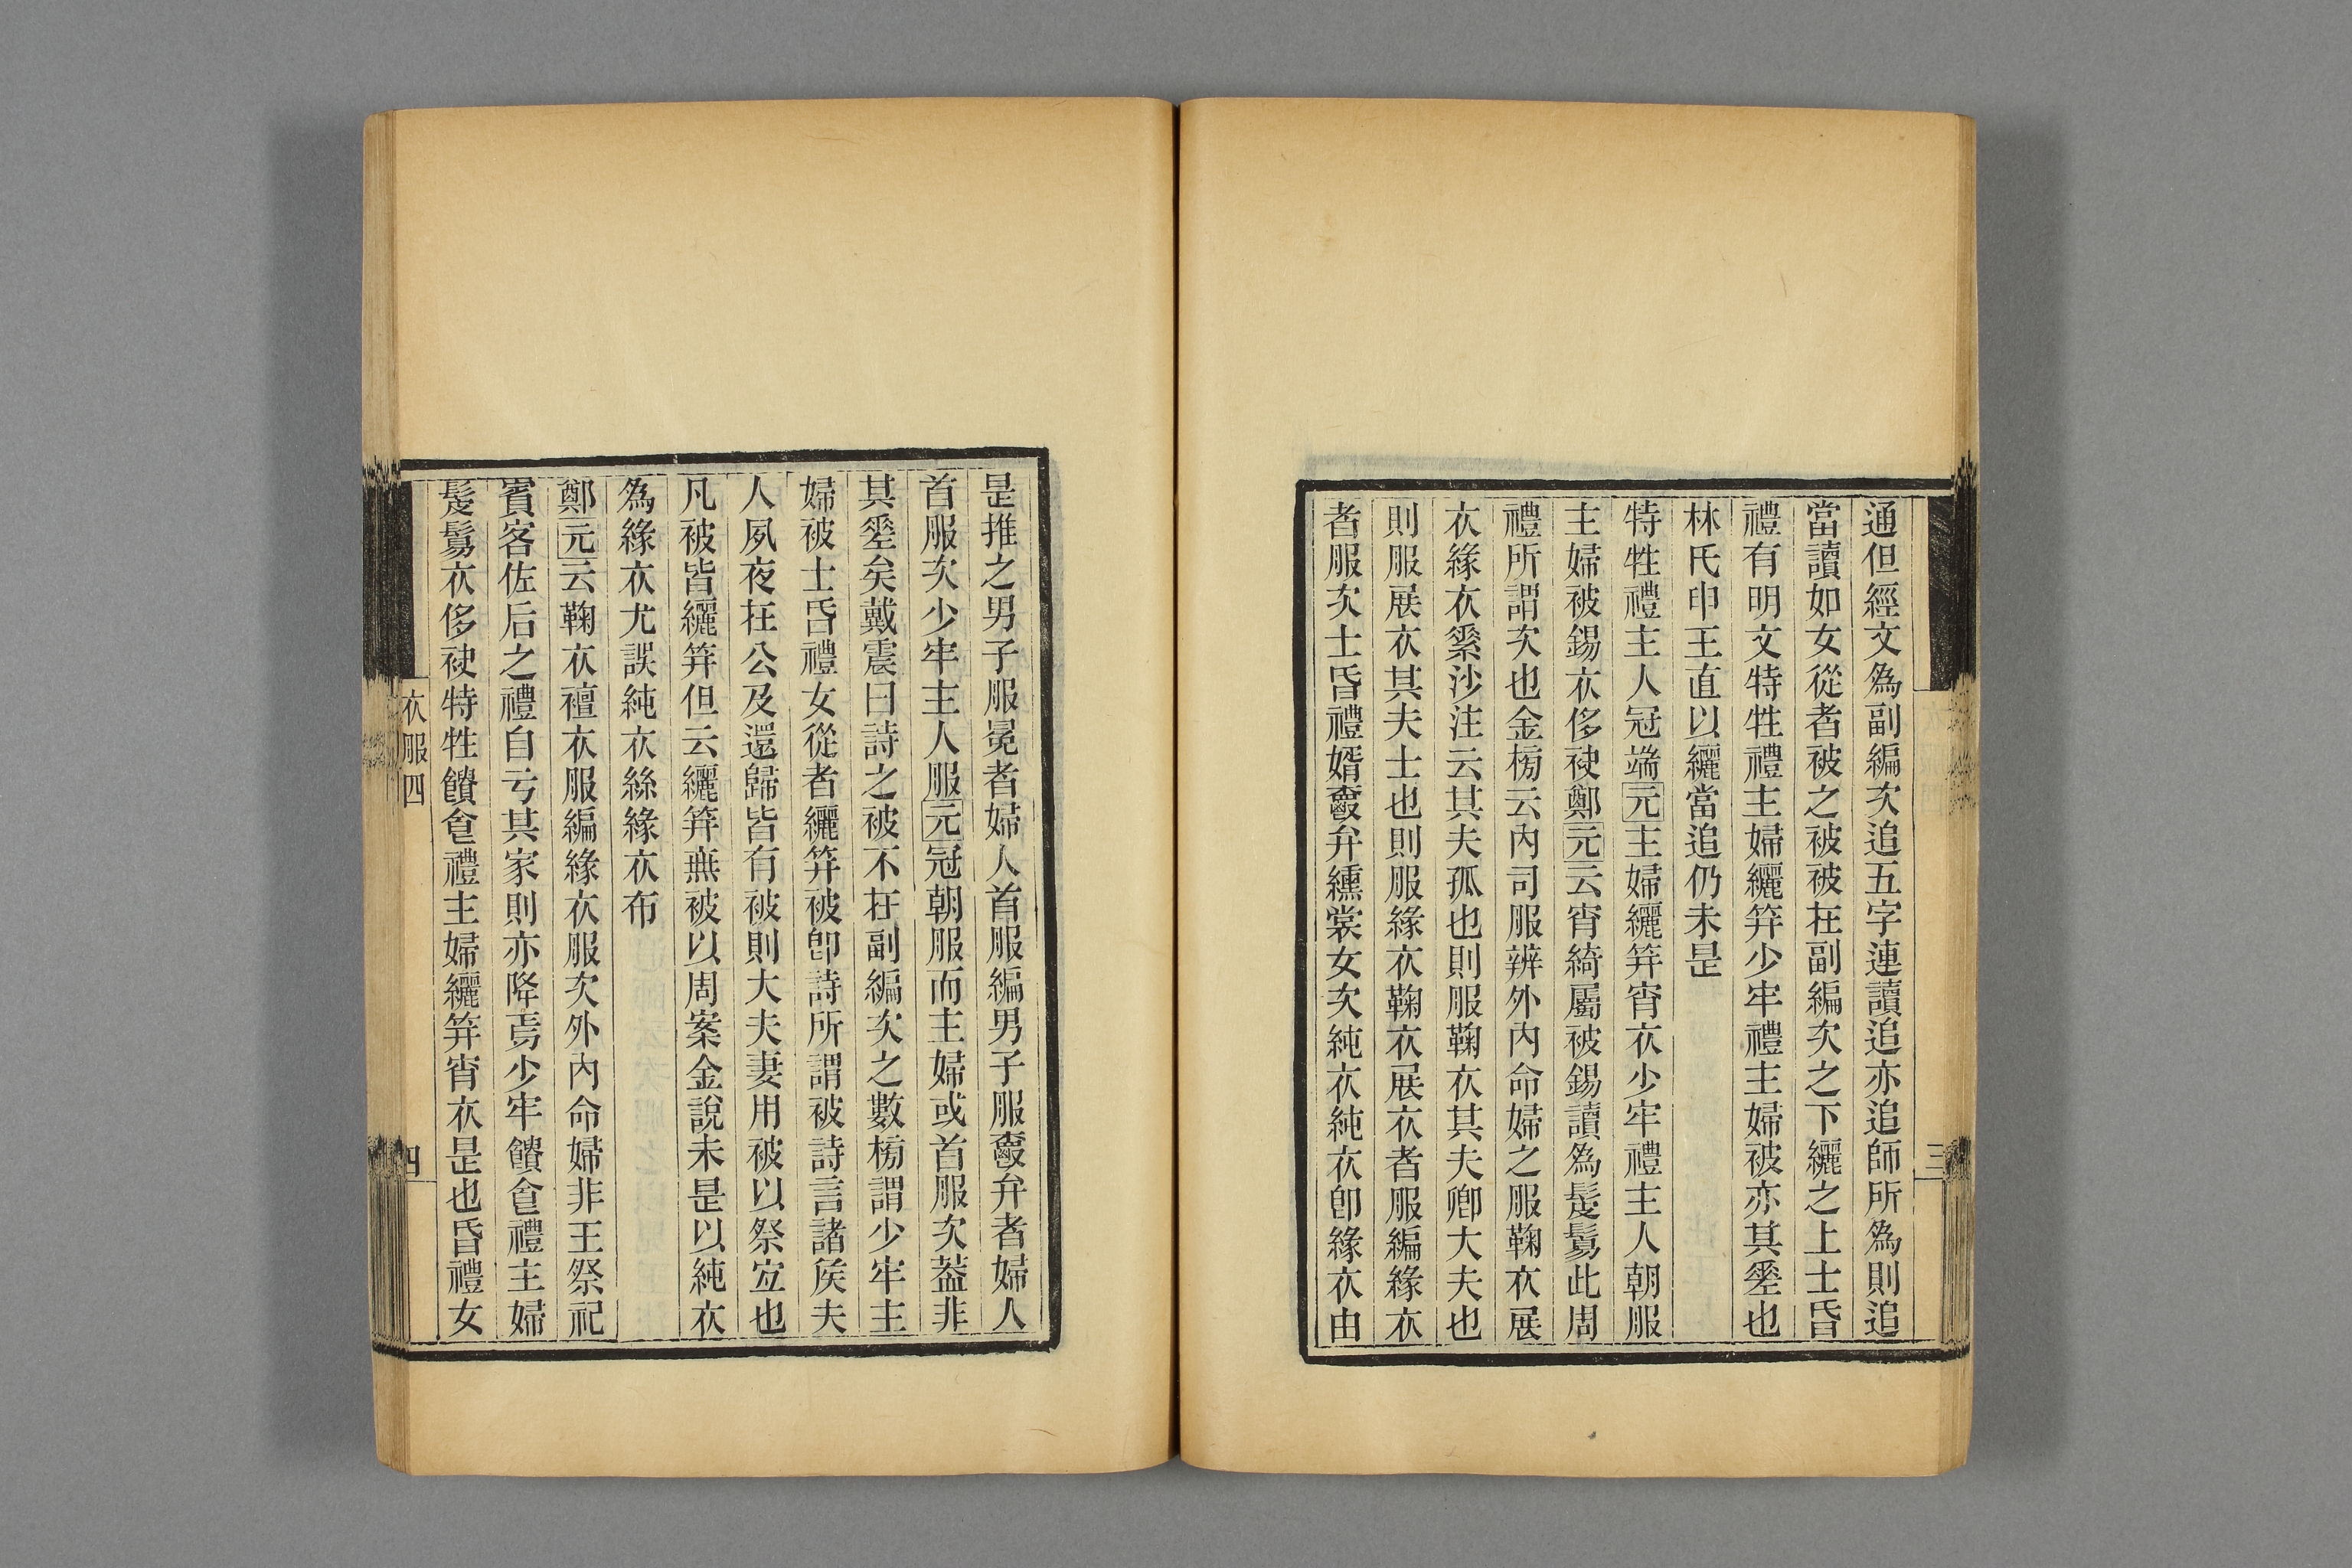 通但經文爲副編次追五字連讀追亦追師所爲則追
當讀如女從者被之被被在副編次之下纚之上士昏
禮有明文特牲禮主婦纚笄少牢禮主婦被亦其𢀩也
林氏申王直以纚當追仍未是
特牲禮主人冠端元主婦纚笄宵衣少牢禮主人朝服
主婦被錫衣侈袂鄭元云宵綺屬被錫讀爲髲鬄此周
禮所謂次也金榜云內司服辨外內命婦之服鞠衣展
衣緣衣縏沙注云其夫孤也則服鞠衣其夫卿大夫也
則服展衣其夫士也則服緣衣鞠衣展衣者服編緣衣
者服次士昏禮婿爵弁纁裳女次純衣純衣卽緣衣由
三
是推之男子服冕者婦人首服編男子服爵弁者婦人
首服次少牢主人服元冠朝服而主婦或首服次葢非
其𢀩矣戴震曰詩之被不在副編次之數榜謂少牢主
婦被士昏禮女從者纚笄被卽詩所謂被詩言諸侯夫
人夙夜在公及還歸皆有被則大夫妻用被以祭宜也
凡被皆纚笄但云纚笄無被以周案金說未是以純衣
爲緣衣尤誤純衣絲緣衣布
鄭元云鞠衣襢衣服編緣衣服次外內命婦非王祭祀
賓客佐后之禮自亏其家則亦降焉少牢饋食禮主婦
髲鬄衣侈袂特牲饋食禮主婦纚笄宵衣是也昏禮女
衣服四
四